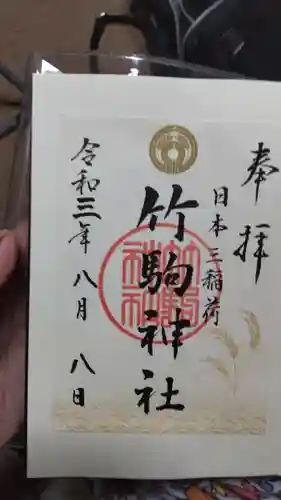 奉拝
日本三稲荷
竹駒神社
令和三年八月八日
竹駒神社